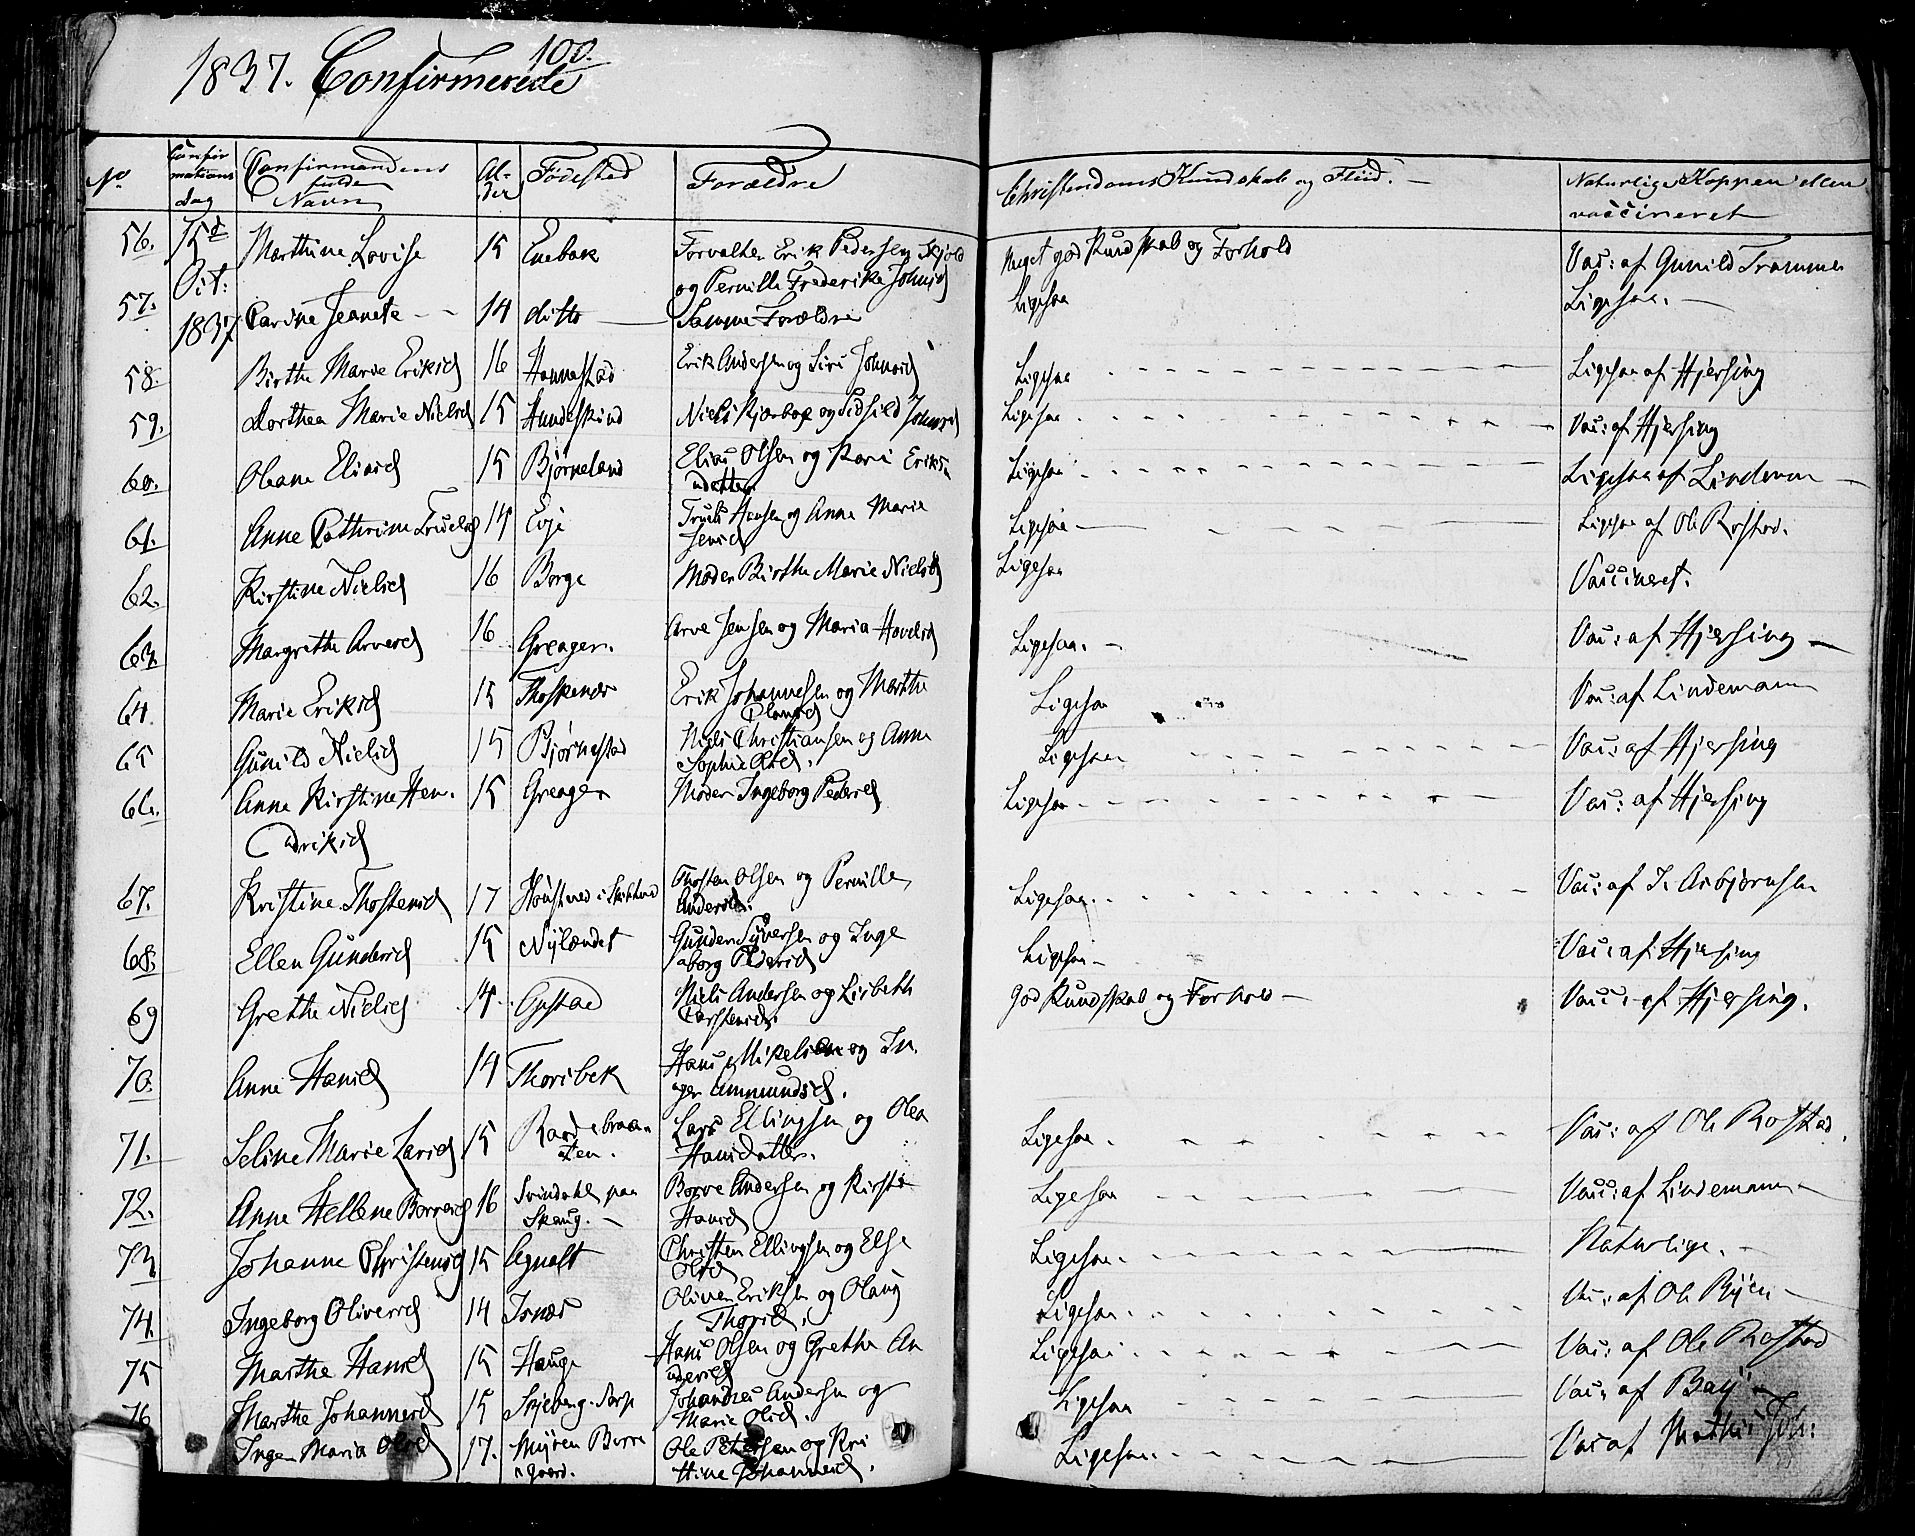 100.
1837. Confirmerede
No Confirmations dag Confirmandens fulde Navn Alder Fødested Forældre Christendoms Kundskab og Fliid. Naturlige Kopper eller vaccineret
56. 15d Oct: 1837 Marthine Lovise 15 Enebak Forvalter Erik Pedersen Skjold og Pernille Frederike Johnsd Meget god Kundskab og Forhold Vac: af Gunild Tramme
57. Carine Jeanete 14 ditto Samme Forældre Ligesaa Ligesaa.
58. Birthe Marie Eriksd 16 Hannestad Erik Andersen og Siri Johnsd Ligesaa Ligesaa af Hjersing
59. Dorthea Marie Nielsd 15 Hundeskind Niels Kjærbox og Sidsild Johnsd Ligesaa Vac: af Hjersing
60. Oleane Eliasd 15 Bjørneland Elias Olsen og Kari Eriksdatter Ligesaa Ligesaa af Lindeman
61. Anne Cathrine Truelsd 14 Evje Truels Hansen og Anne Marie Jensd Ligesaa Ligesaa af Ole Rostad.
62. Kirstine Nielsd 16 Borge Moder Birthe Marie Nielsd Ligesaa Vaccineret.
63. Margrethe Arvesd 16 Greager. Arve Jensen og Maria Hovelsd Ligesaa. Vac: af Hjersing
64. Marie Eriksd 15 Thoskenær Erik Johannesen og Marthe Olausd Ligesaa Vac: af Lindemann
65 Gunild Nielsd 15 Bjørnestad Niels Christiansen og Anne Sophie Olsd. Ligesaa Vac: af Hjersing
66. Anne Kirstine Hendriksd 15 Greager Moder Ingeborg Pedersd Ligesaa Vac: af Hjersing
67. Kristine Thostensd 17 Thosten Olsen og Pernille Andersd. Ligesaa. Vac: af I. Asbjørnsen
68. Ellen Gundersd 15 Nylændet Gunder Syversen og Ingeborg Pedersd Ligesaa Vac: af Hjersing
69 Grethe Nielsd 14 Opstad Niels Andersen og Lisbeth Carstensd. god Kundskab og Forhold Vacc: af Hjersing.
70. Anne Hansd 14 Thorsbek Hans Mikelsen og Inger Ammundsd.
71. Seline Marie Larsd 15 Rardebraaten. Lars Ellingsen og Olea Hansdatter. Ligesaa. Vac: af Ole Rostad.
72. Anne Hellene Borresd 16 Svindahl paa Skaug. Borre Andersen og Kirsti Hansd Ligesaa Vacc: af Lindemann
73 Johanne Christensd 15 Agnalt Christen Ellingsen og Else Olsd Ligesaa. Naturlige.
74. Ingeborg Oliversd 14 Isnæs Oliver Eriksen og Olaug Thorsd. Ligesaa. Vac: af Ole Byen
75 Marthe Hansd 15 Hauge Hans Olsen og Grethe Andersd Ligesaa Vac: af Ole Rostad
76 Marthe Johannesd 15 Skjeberg. Johannes Andersen og Marie Olsd. Ligesaa Vac: af Baz
Inger Maria Olsd 17. Myren Borregaard. Ole Petersen og Kristine Johannesd. Ligesaa. Vac af Mathis Joh: